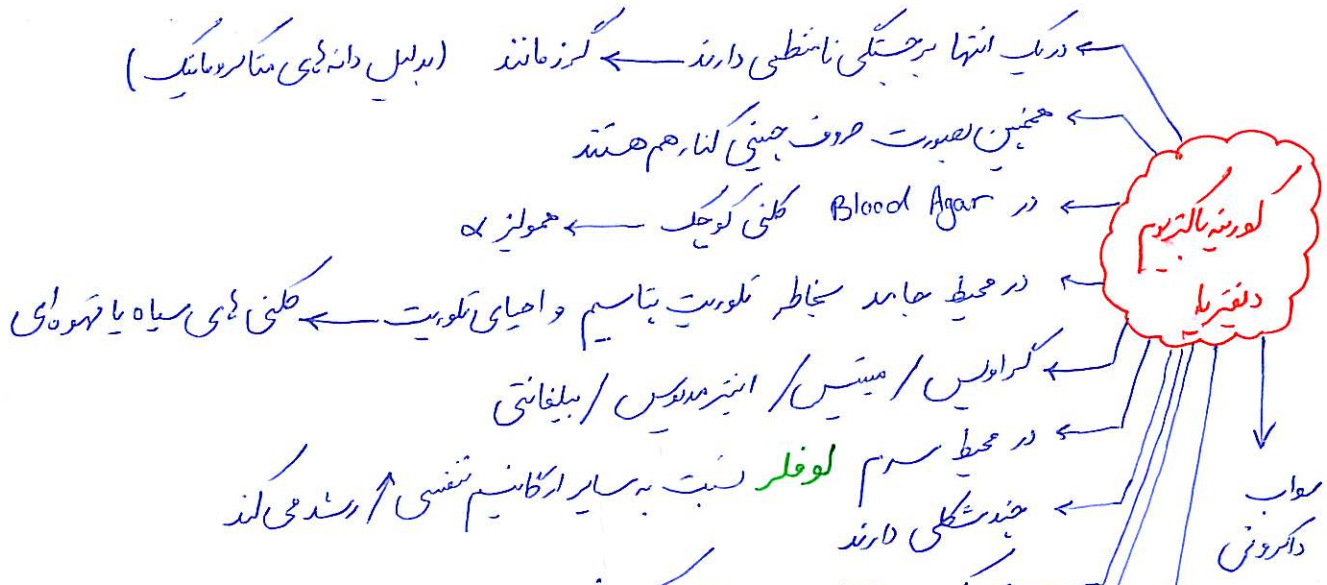 در یک انتها برجستگی نامنظمی دارند ← گرز مانند (بدلیل دانه های متاکروماتیک)
همچنین بصورت حروف چینی کنار هم هستند
در Blood Agar کلنی کوچک ← همولیز α
کورینه باکتریوم
دیفتریه
در محیط جامد بخاطر تلوریت پتاسیم و احیای تلوریت ← کلنی های سیاه یا قهوه ای
گراویس / میتیس / اینترمدیوس / بیلفانتی
در محیط سرم لوفلر نسبت به سایر ارگانیسم تنفسی ↑ رشد می کند
چند شکلی دارند
سواب
داکرونی